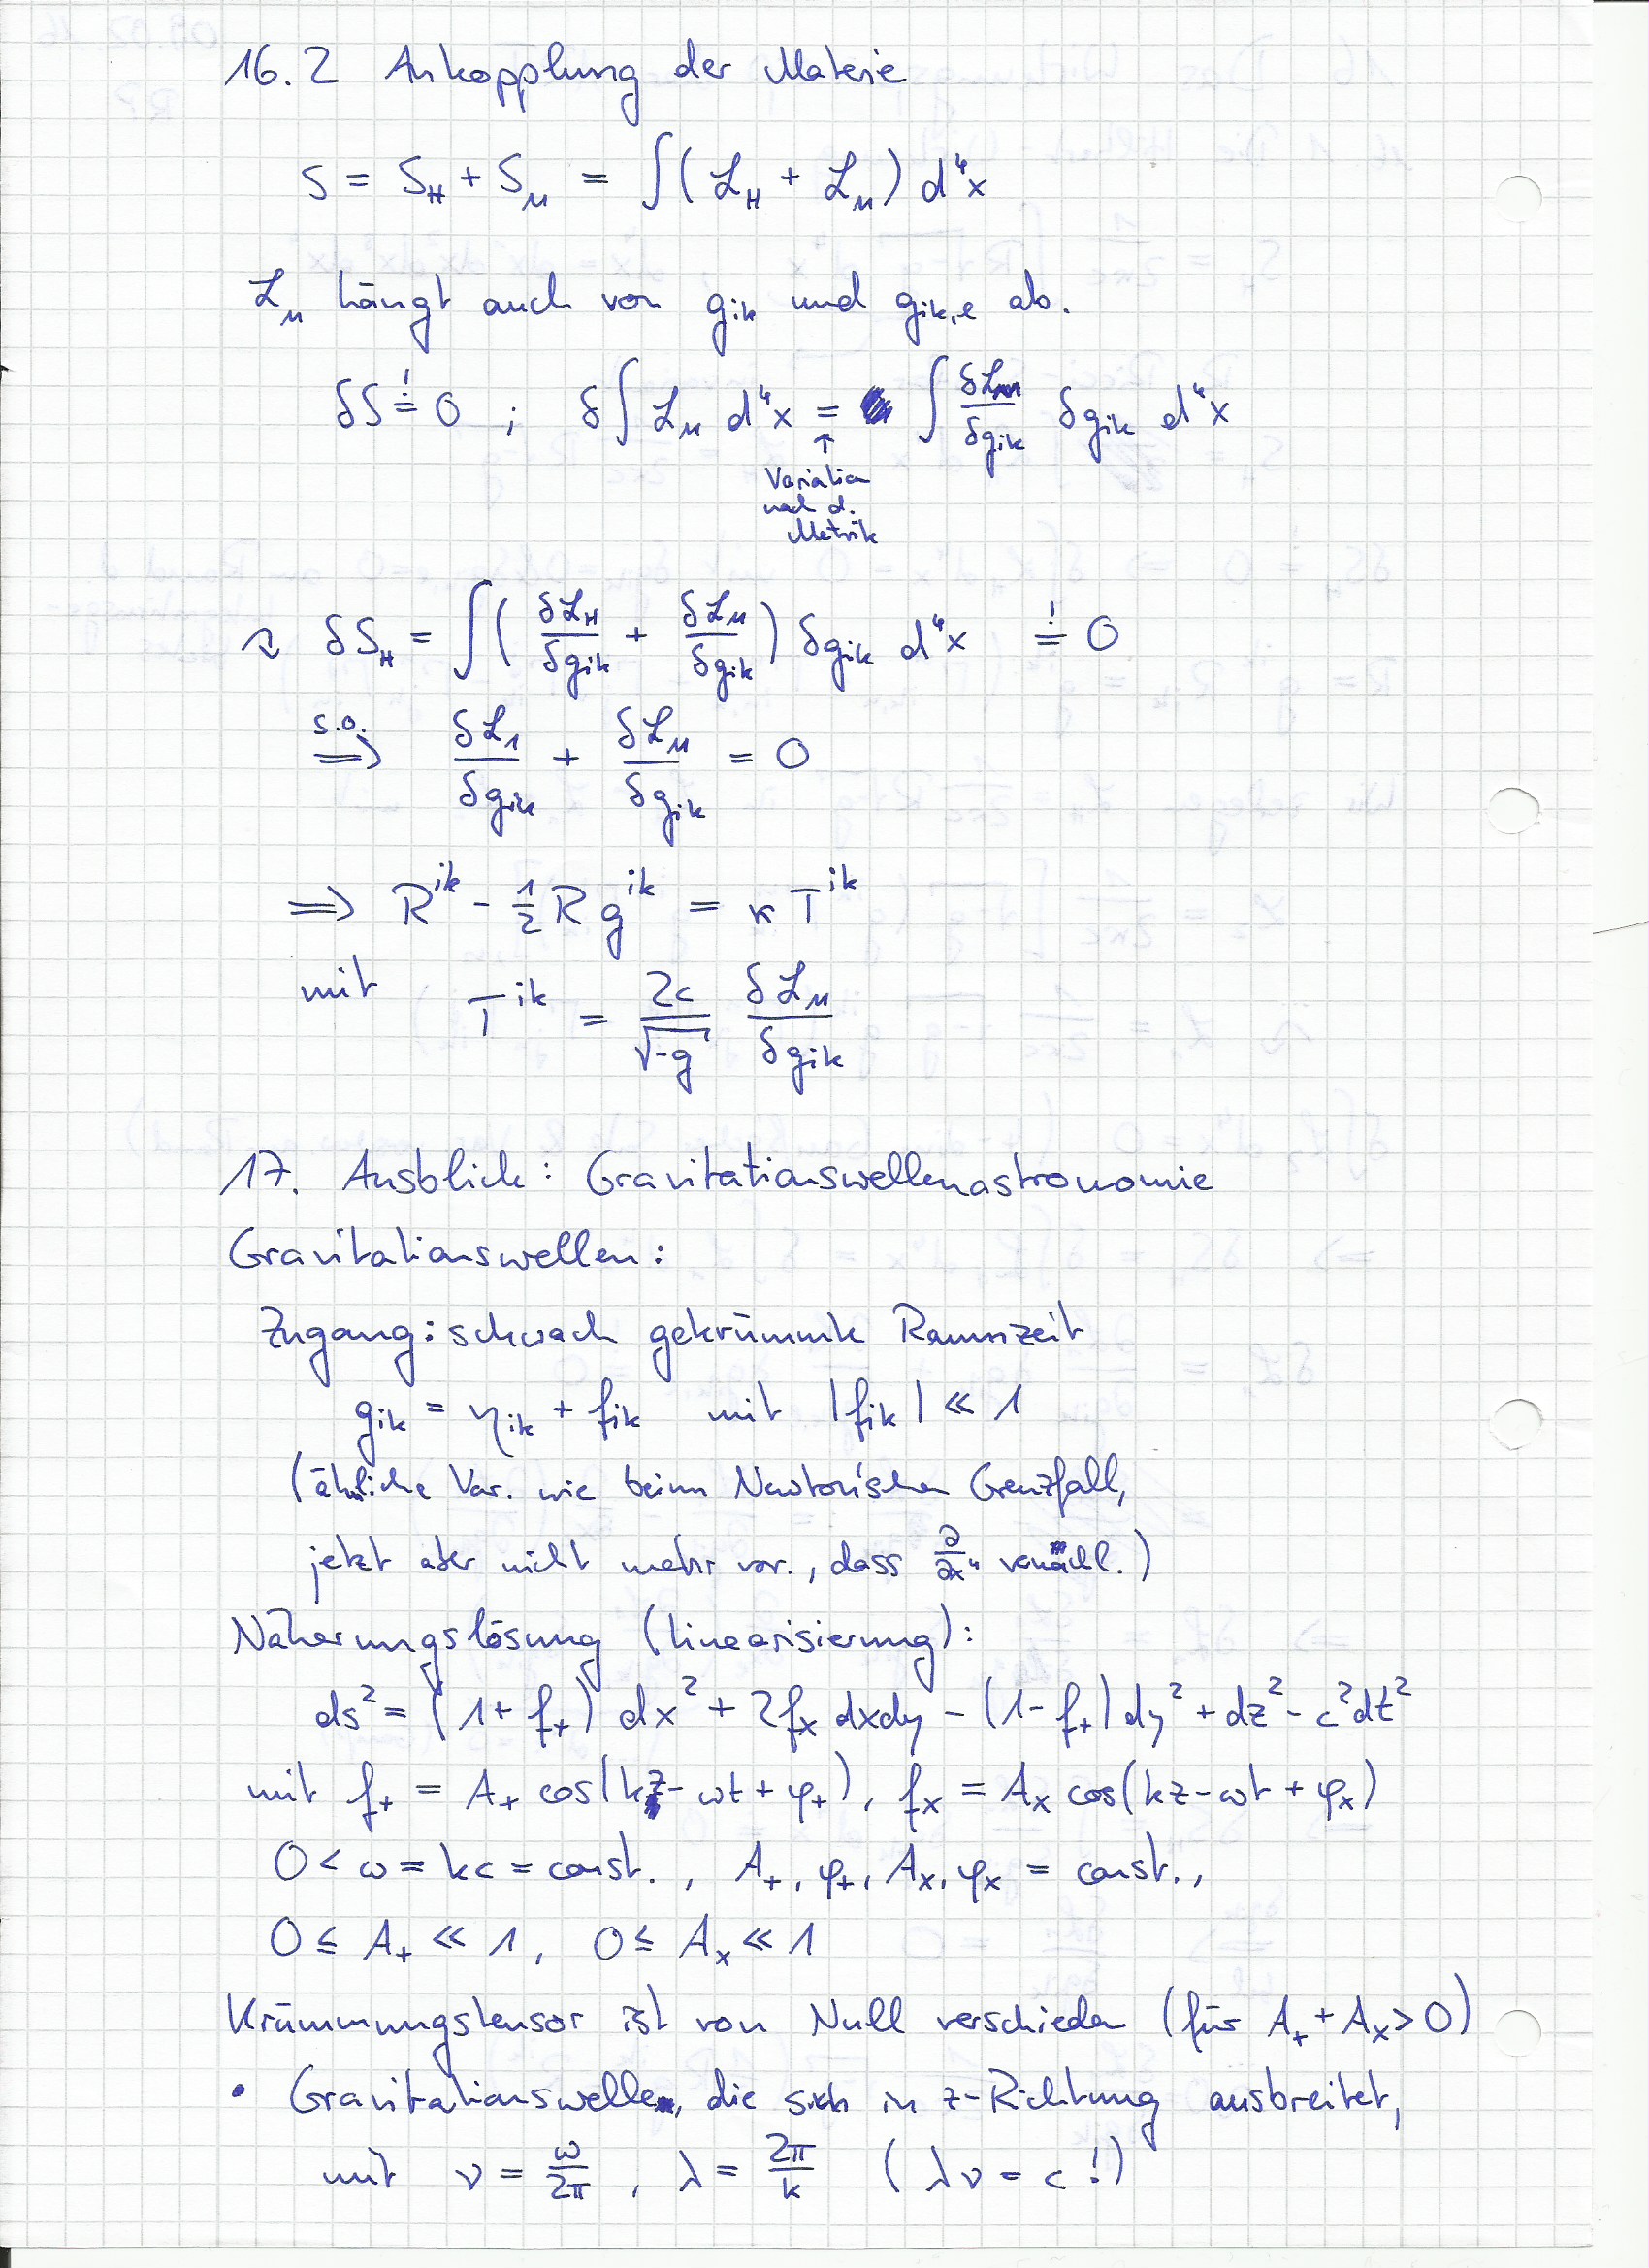 16.2 Ankopplung der Materie
S = S_H + S_M = ∫(ℒ_H + ℒ_M) d⁴x
ℒ_M hängt auch von g_ik und g_ik,l ab.
δS =! 0 ; δ∫ℒ_M d⁴x = ∫ δℒ_M/δg_ik δg_ik d⁴x
↑
Variation
nach d.
Metrik
↷ δS_H = ∫( δℒ_H/δg_ik + δℒ_M/δg_ik ) δg_ik d⁴x =! 0
s.o.
⟹ δℒ_1/δg_ik + δℒ_M/δg_ik = 0
⟹ R^ik - 1/2 R g^ik = κ T^ik
mit T^ik = 2c/√-g δℒ_M/δg_ik
17. Ausblick: Gravitationswellenastronomie
Gravitationswellen:
Zugang: schwach gekrümmte Raumzeit
g_ik = η_ik + f_ik mit |f_ik| ≪ 1
(ähnliche Vor. wie beim Newton'schen Grenzfall,
jetzt aber nicht mehr vor., dass ∂/∂x⁴ vernachl.)
Näherungslösung (Linearisierung):
ds² = (1+f_+) dx² + 2f_× dxdy - (1-f_+)dy² + dz² - c²dt²
mit f_+ = A_+ cos(kz - ωt + φ_+), f_× = A_× cos(kz - ωt + φ_×)
0 < ω = kc = const. , A_+, φ_+, A_×, φ_× = const.,
0 ≤ A_+ ≪ 1, 0 ≤ A_× ≪ 1
Krümmungstensor ist von Null verschieden (für A_+ + A_× > 0)
• Gravitationswelle, die sich in z-Richtung ausbreitet,
mit ν = ω/2π , λ = 2π/k (λν = c !)